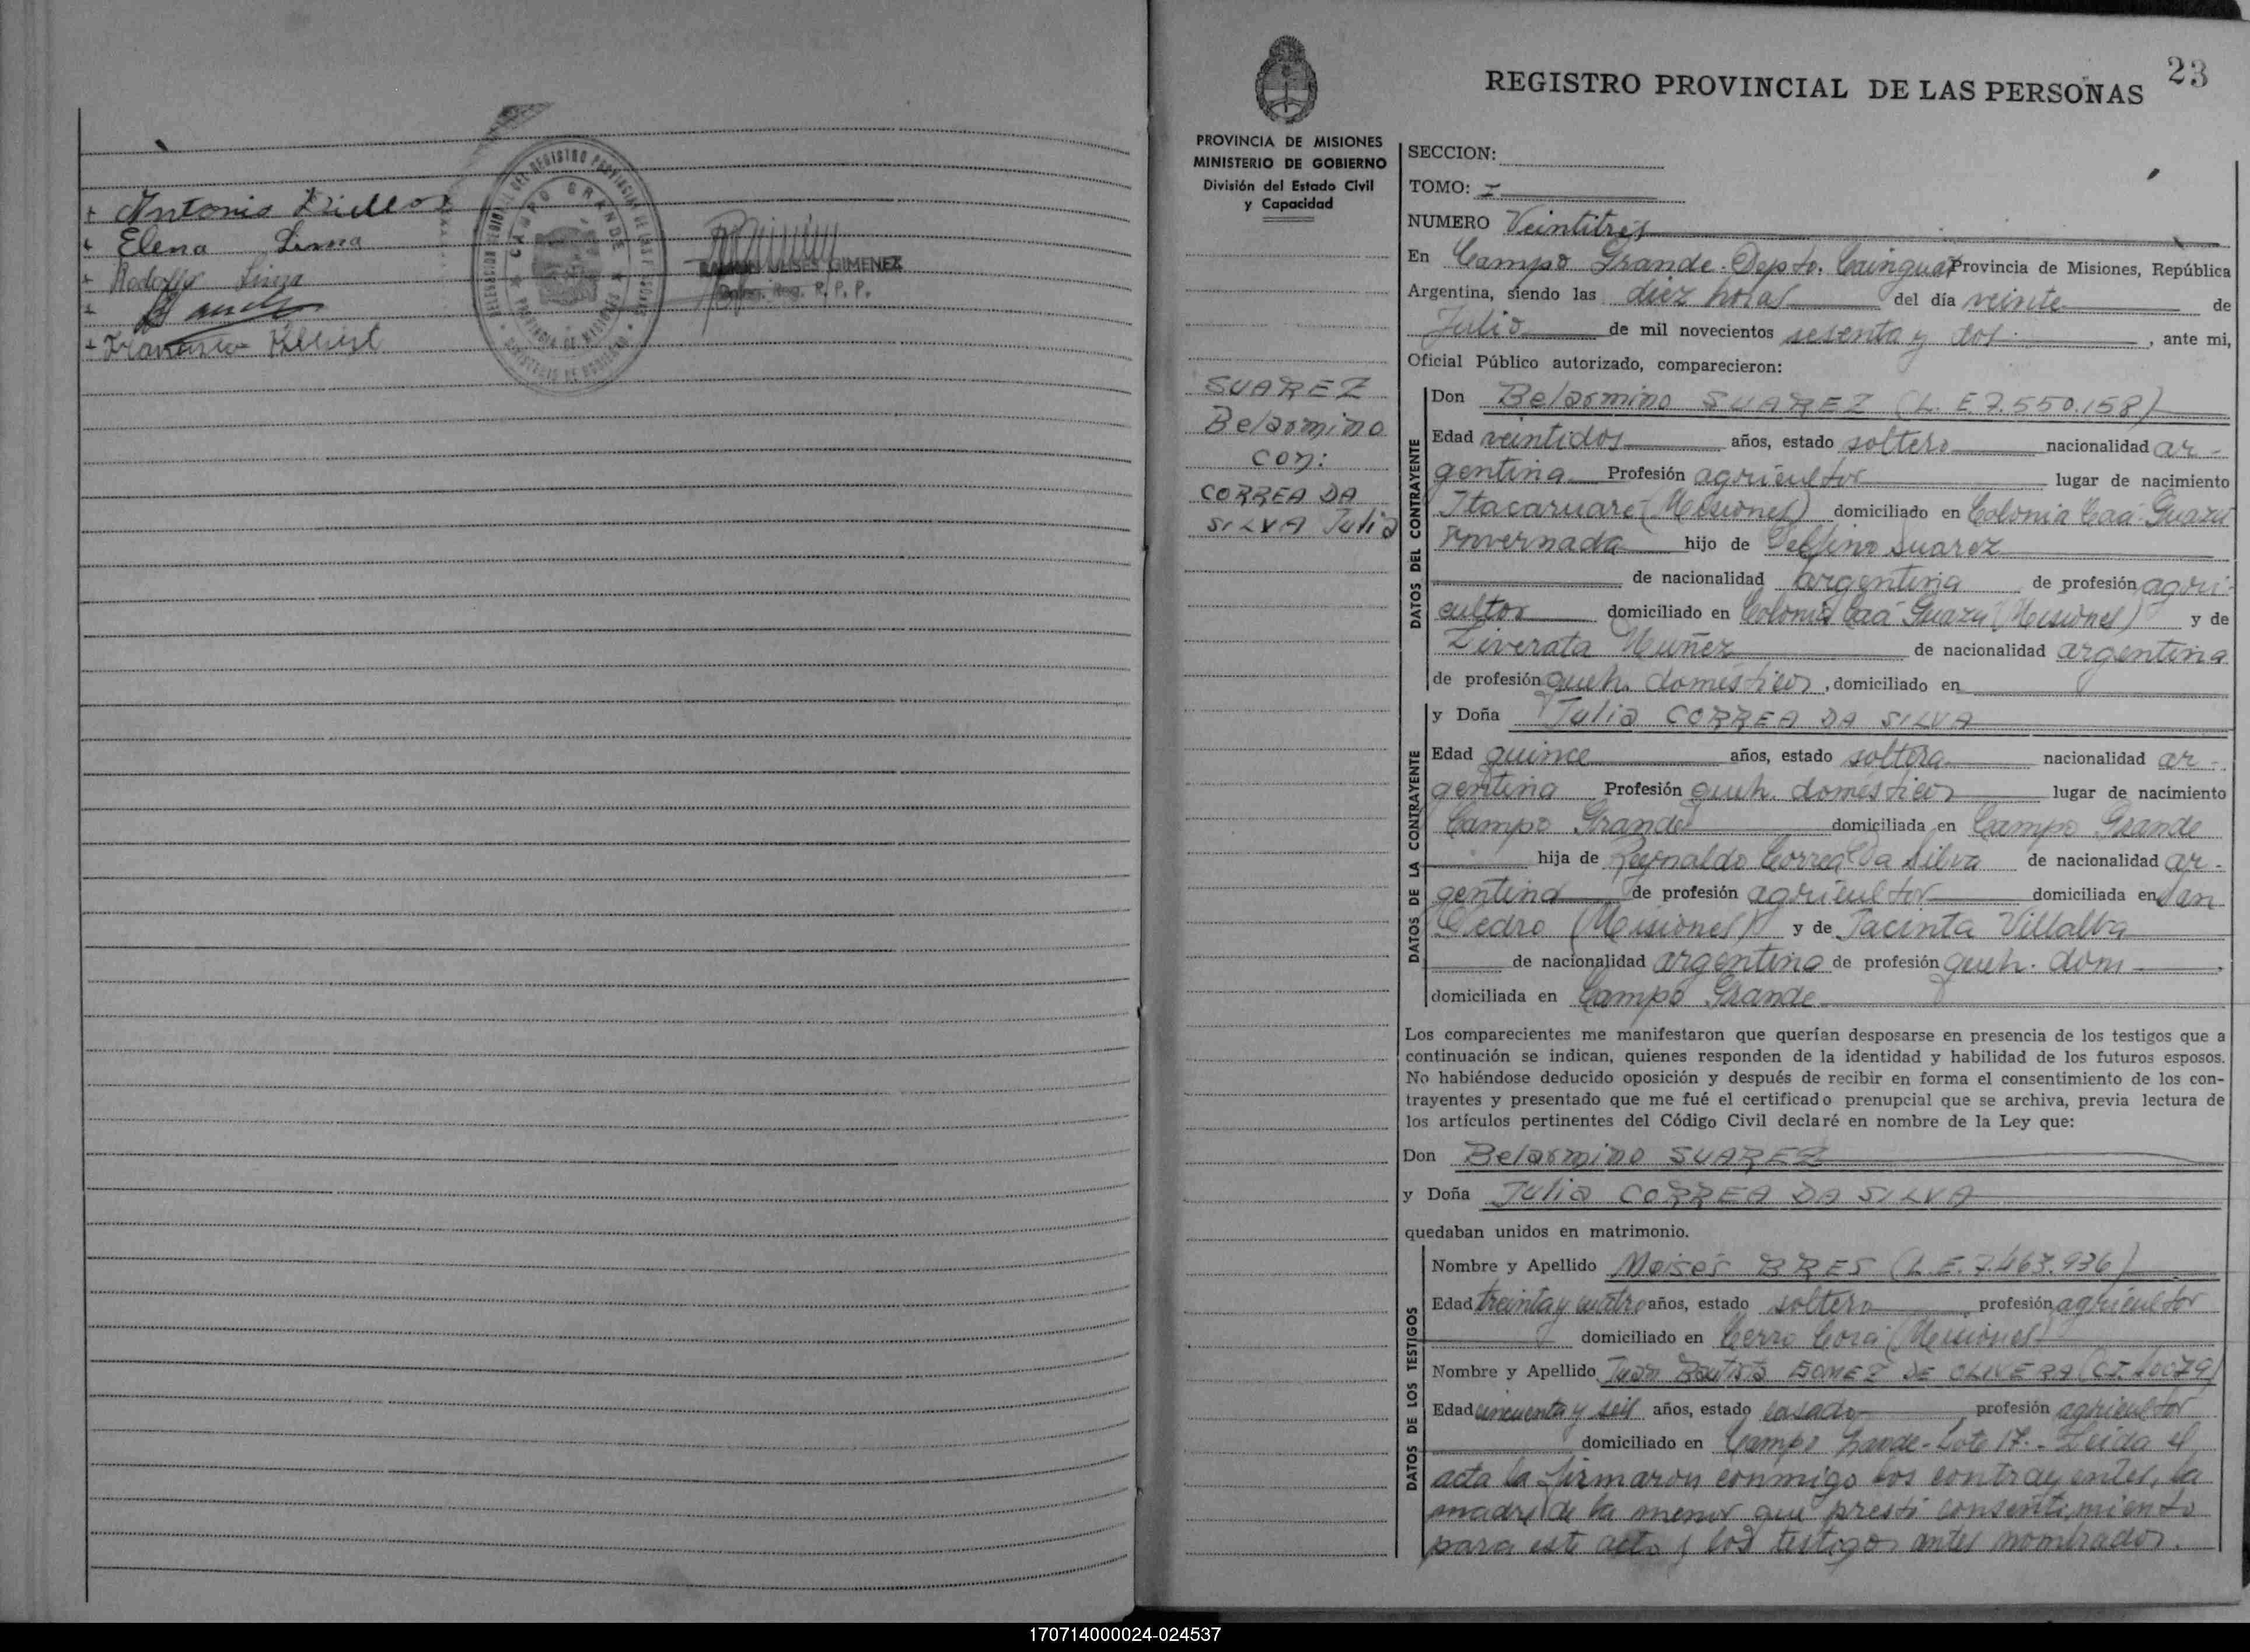 + Antonio
+ Elena Lima
+ Rodolfo Lima
+
+ Francisco
DELEGACION REGIONAL DEL REGISTRO PROVINCIAL DE LAS PERSONAS
* CAMPO GRANDE *
PROVINCIA DE MISIONES
* MINISTERIO DE GOBIERNO *
RAMON ULISES GIMENEZ
Deleg. Reg. R. P. P.
23
REGISTRO PROVINCIAL DE LAS PERSONAS
PROVINCIA DE MISIONES
MINISTERIO DE GOBIERNO
División del Estado Civil
y Capacidad
SUAREZ
Belarmino
con:
CORREA DA
SILVA Julia
SECCION:
TOMO: I
NUMERO Veintitrés
En Campo Grande. Depto. Cainguas Provincia de Misiones, República
Argentina, siendo las diez horas del día veinte de
Julio de mil novecientos sesenta y dos, ante mi,
Oficial Público autorizado, comparecieron:
DATOS DEL CONTRAYENTE
Don Belarmino SUAREZ (L. E. 7.550.158)
Edad veintidos años, estado soltero nacionalidad ar-
gentina Profesión agricultor lugar de nacimiento
Itacaruare (Misiones) domiciliado en Colonia Caá-Guazú
Invernada hijo de Delfino Suarez
de nacionalidad argentina de profesión agri-
cultor domiciliado en Colonia Caá Guazú (Misiones) y de
Liverata Nuñez de nacionalidad argentina
de profesión queh. domésticos, domiciliado en
DATOS DE LA CONTRAYENTE
y Doña Julia CORREA DA SILVA
Edad quince años, estado soltera nacionalidad ar-
gentina Profesión queh. domésticos lugar de nacimiento
Campo Grande domiciliada en Campo Grande
hija de Reynaldo Correa Da Silva de nacionalidad ar-
gentina de profesión agricultor domiciliada en San
Pedro (Misiones) y de Jacinta Villalba
de nacionalidad argentina de profesión queh. dom
domiciliada en Campo Grande
Los comparecientes me manifestaron que querían desposarse en presencia de los testigos que a
continuación se indican, quienes responden de la identidad y habilidad de los futuros esposos.
No habiéndose deducido oposición y después de recibir en forma el consentimiento de los con-
trayentes y presentado que me fué el certificado prenupcial que se archiva, previa lectura de
los artículos pertinentes del Código Civil declaré en nombre de la Ley que:
Don Belarmino SUAREZ
y Doña Julia CORREA DA SILVA
quedaban unidos en matrimonio.
DATOS DE LOS TESTIGOS
Nombre y Apellido Moisés BRES (L. E. 7.463.936)
Edad treinta y cuatro años, estado soltero profesión agricultor
domiciliado en Cerro Corá (Misiones)
Nombre y Apellido Juan Bautista GOMEZ DE OLIVERA
Edad cincuenta y seis años, estado casado profesión agricultor
domiciliado en Campo Grande-Lote 17.- Leida el
acta la firmaron conmigo los contrayentes, la
madre de la menor que prestó consentimiento
para este acto y los testigos antes nombrados.
170714000024-024537